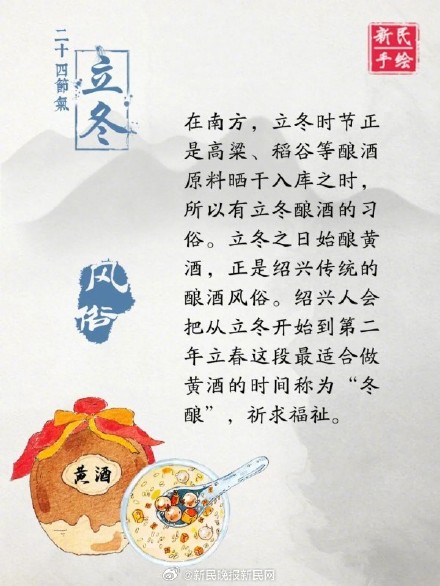 二十四節氣
立冬
新民
手绘
在南方，立冬时节正
是高粱、稻谷等酿酒
原料晒干入库之时，
所以有立冬酿酒的习
俗。立冬之日始酿黄
酒，正是绍兴传统的
酿酒风俗。绍兴人会
把从立冬开始到第二
年立春这段最适合做
黄酒的时间称为“冬
酿”，祈求福祉。
风俗
黄酒
@新民晚报新民网